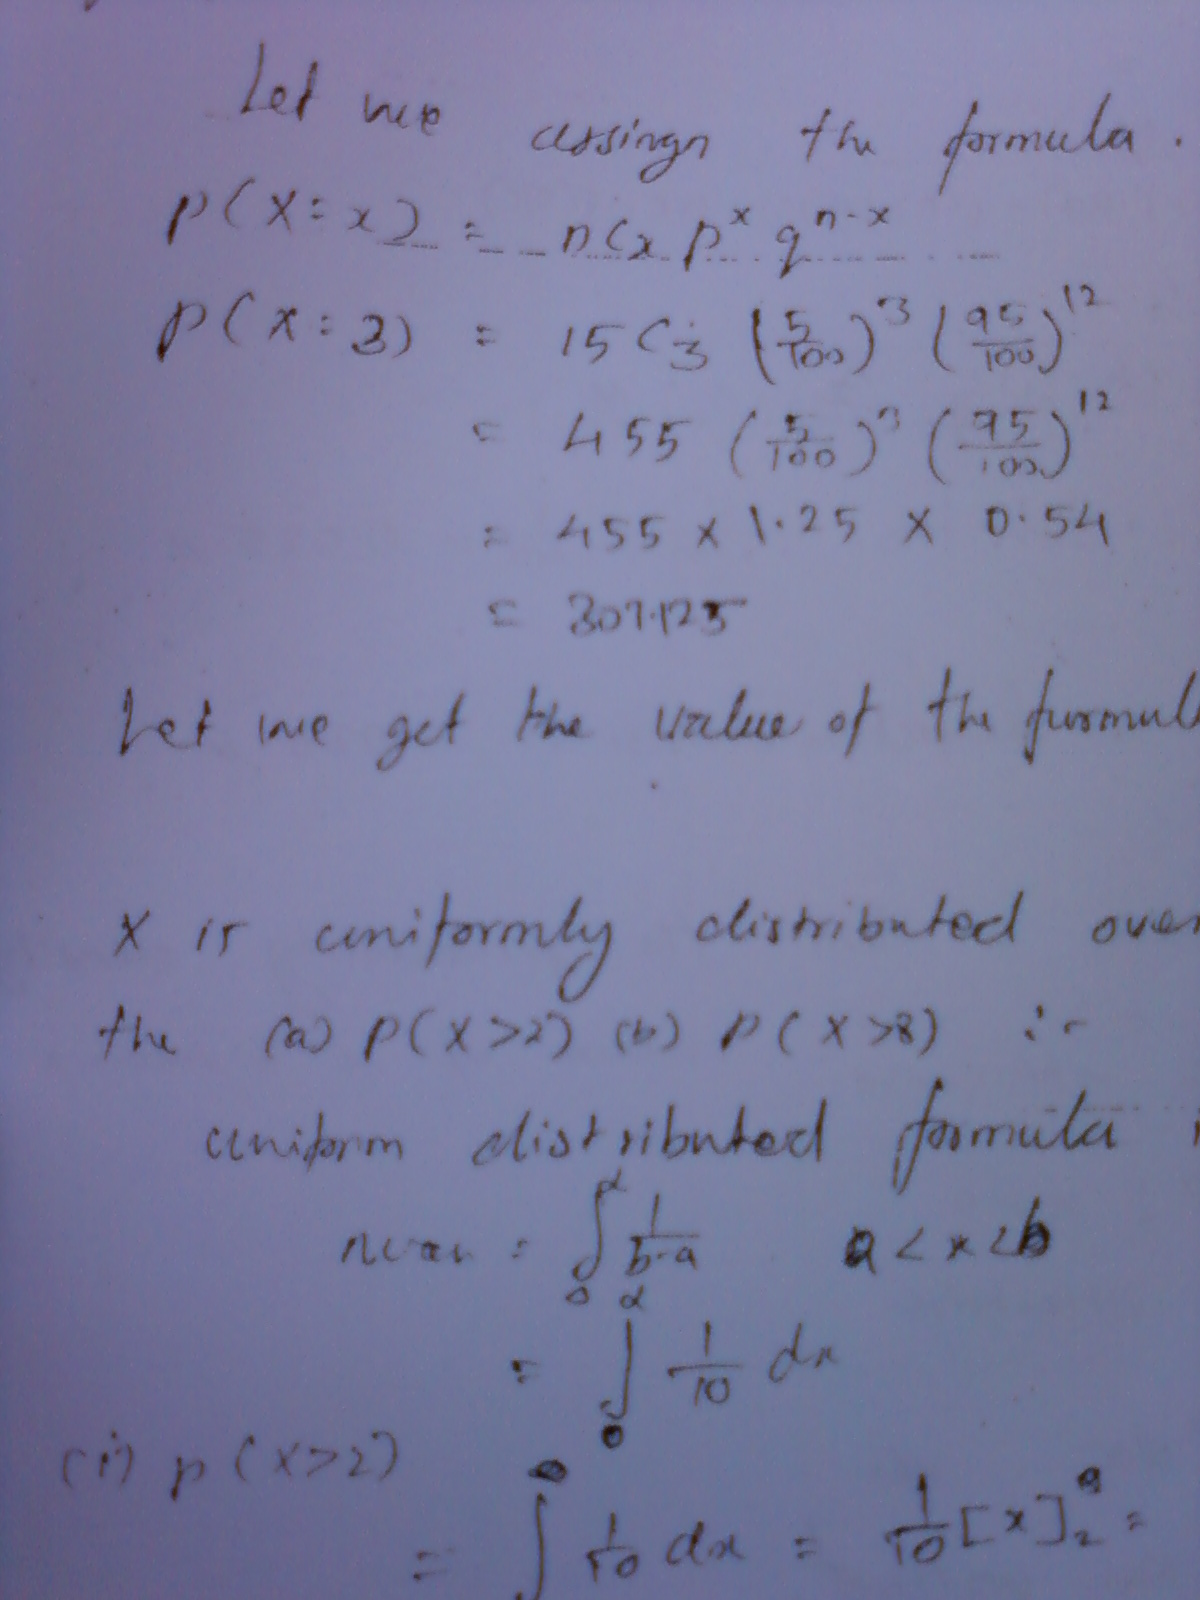 Let we assingn the formula.
P(X=x) = nCx p^x q^n-x
P(X=3) = 15C3 (5/100)^3 (95/100)^12
= 455 (5/100)^3 (95/100)^12
= 455 x 1.25 x 0.54
= 307.125
Let we get the value of the formul
X is uniformly distributed over
the (a) P(X>2) (b) P(X>8) :-
uniform distributed formula
mean = ∫ 1/b-a a<x<b
= ∫ 1/10 dx
(i) p(X>2)
= ∫ 1/10 dx = 1/10 [x]2 =